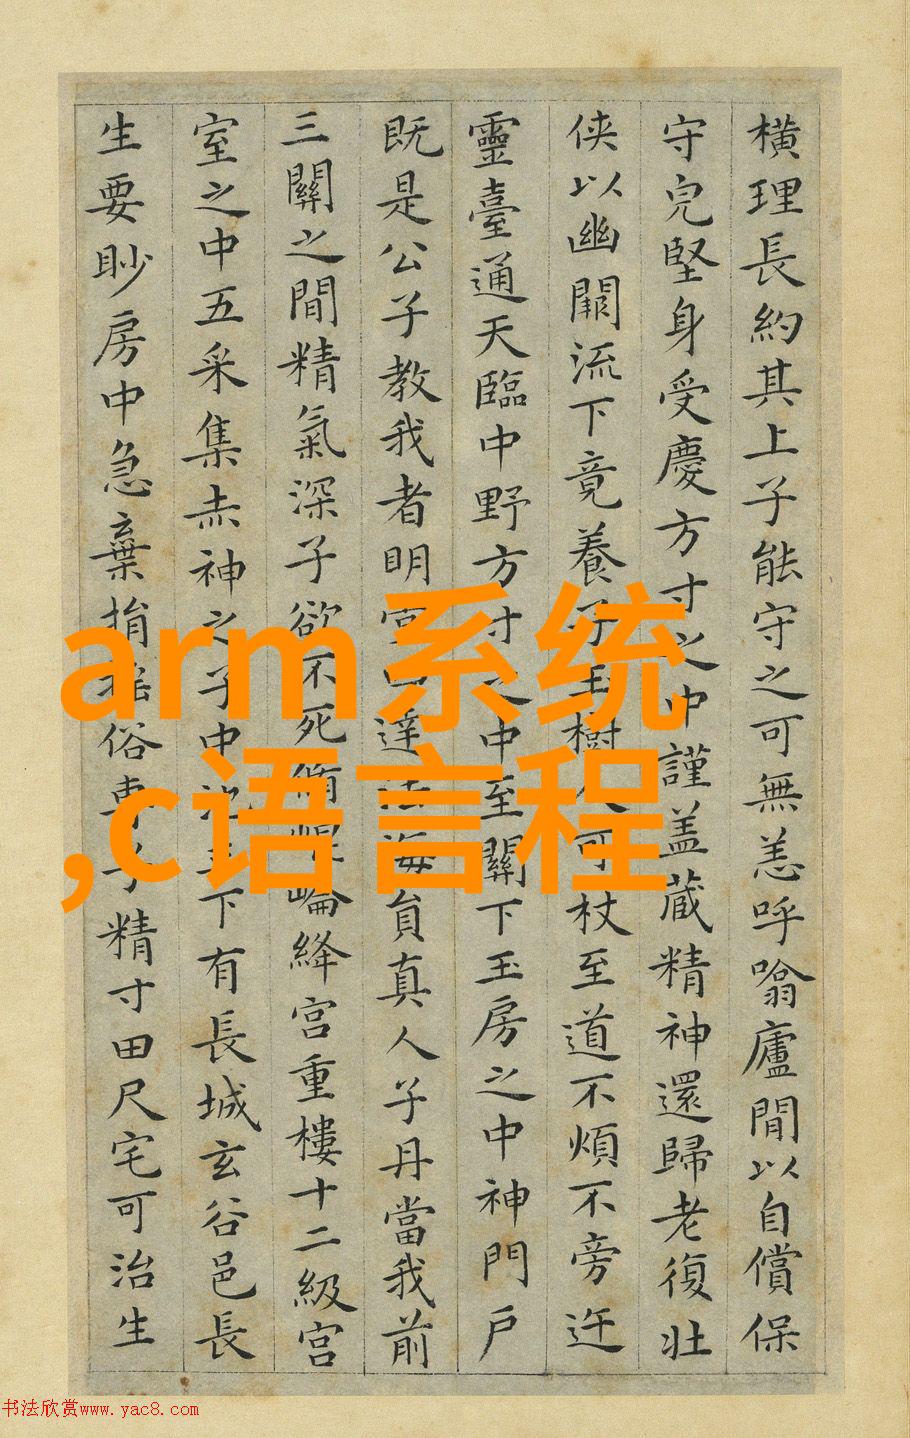 橫理長約其上子能守之可無恙呼噏廬間以自償保
守皃堅身受慶方寸之中謹盖藏精神還歸老復壯
侠以幽闕流下竟養子玉樹人可杖至道不煩不旁迕
靈臺通天臨中野方寸之中至關下玉房之中神門戶
既是公子教我者明達海員真人子丹當我前
三關之間精氣深子欲不死脩崐崘絳宮重樓十二級宮
室之中五采集赤神之子中池下有長城玄谷邑長
生要眇房中急棄捐俗專子精寸田尺宅可治生
arm系统
,c语言程
书法欣赏www.yac8.com